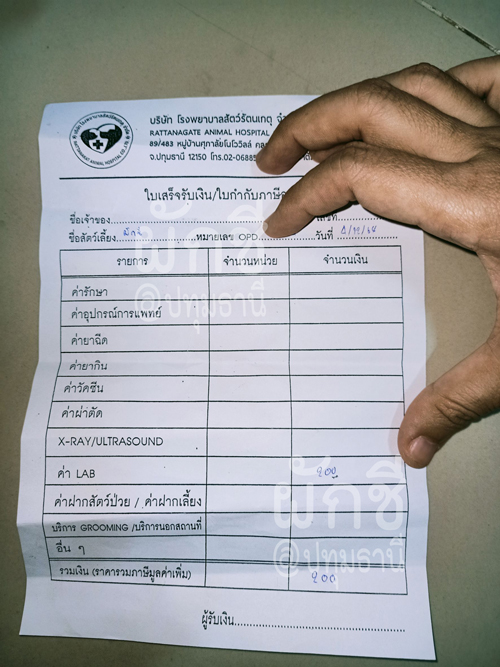 บริษัท โรงพยาบาลสัตว์รัตนเกตุ
RATTANAGATE ANIMAL HOSPITAL
89/483 หมู่บ้านศุภาลัยโนโววิลล์
จ.ปทุมธานี 12150 โทร.02-0688
ใบเสร็จรับเงิน/ใบกำกับภาษี
ชื่อเจ้าของ
ชื่อสัตว์เลี้ยง ผักชี หมายเลข OPD วันที่
รายการ จำนวนหน่วย จำนวนเงิน
ค่ารักษา
ค่าอุปกรณ์การแพทย์
ค่ายาฉีด
ค่ายากิน
ค่าวัคซีน
ค่าผ่าตัด
X-RAY/ULTRASOUND
ค่า LAB 200
ค่าฝากสัตว์ป่วย / ค่าฝากเลี้ยง
บริการ GROOMING /บริการนอกสถานที่
อื่น ๆ
รวมเงิน (ราคารวมภาษีมูลค่าเพิ่ม) 200
ผู้รับเงิน
ผักชี
@ปทุมธานี
ผักชี
@ปทุมธานี